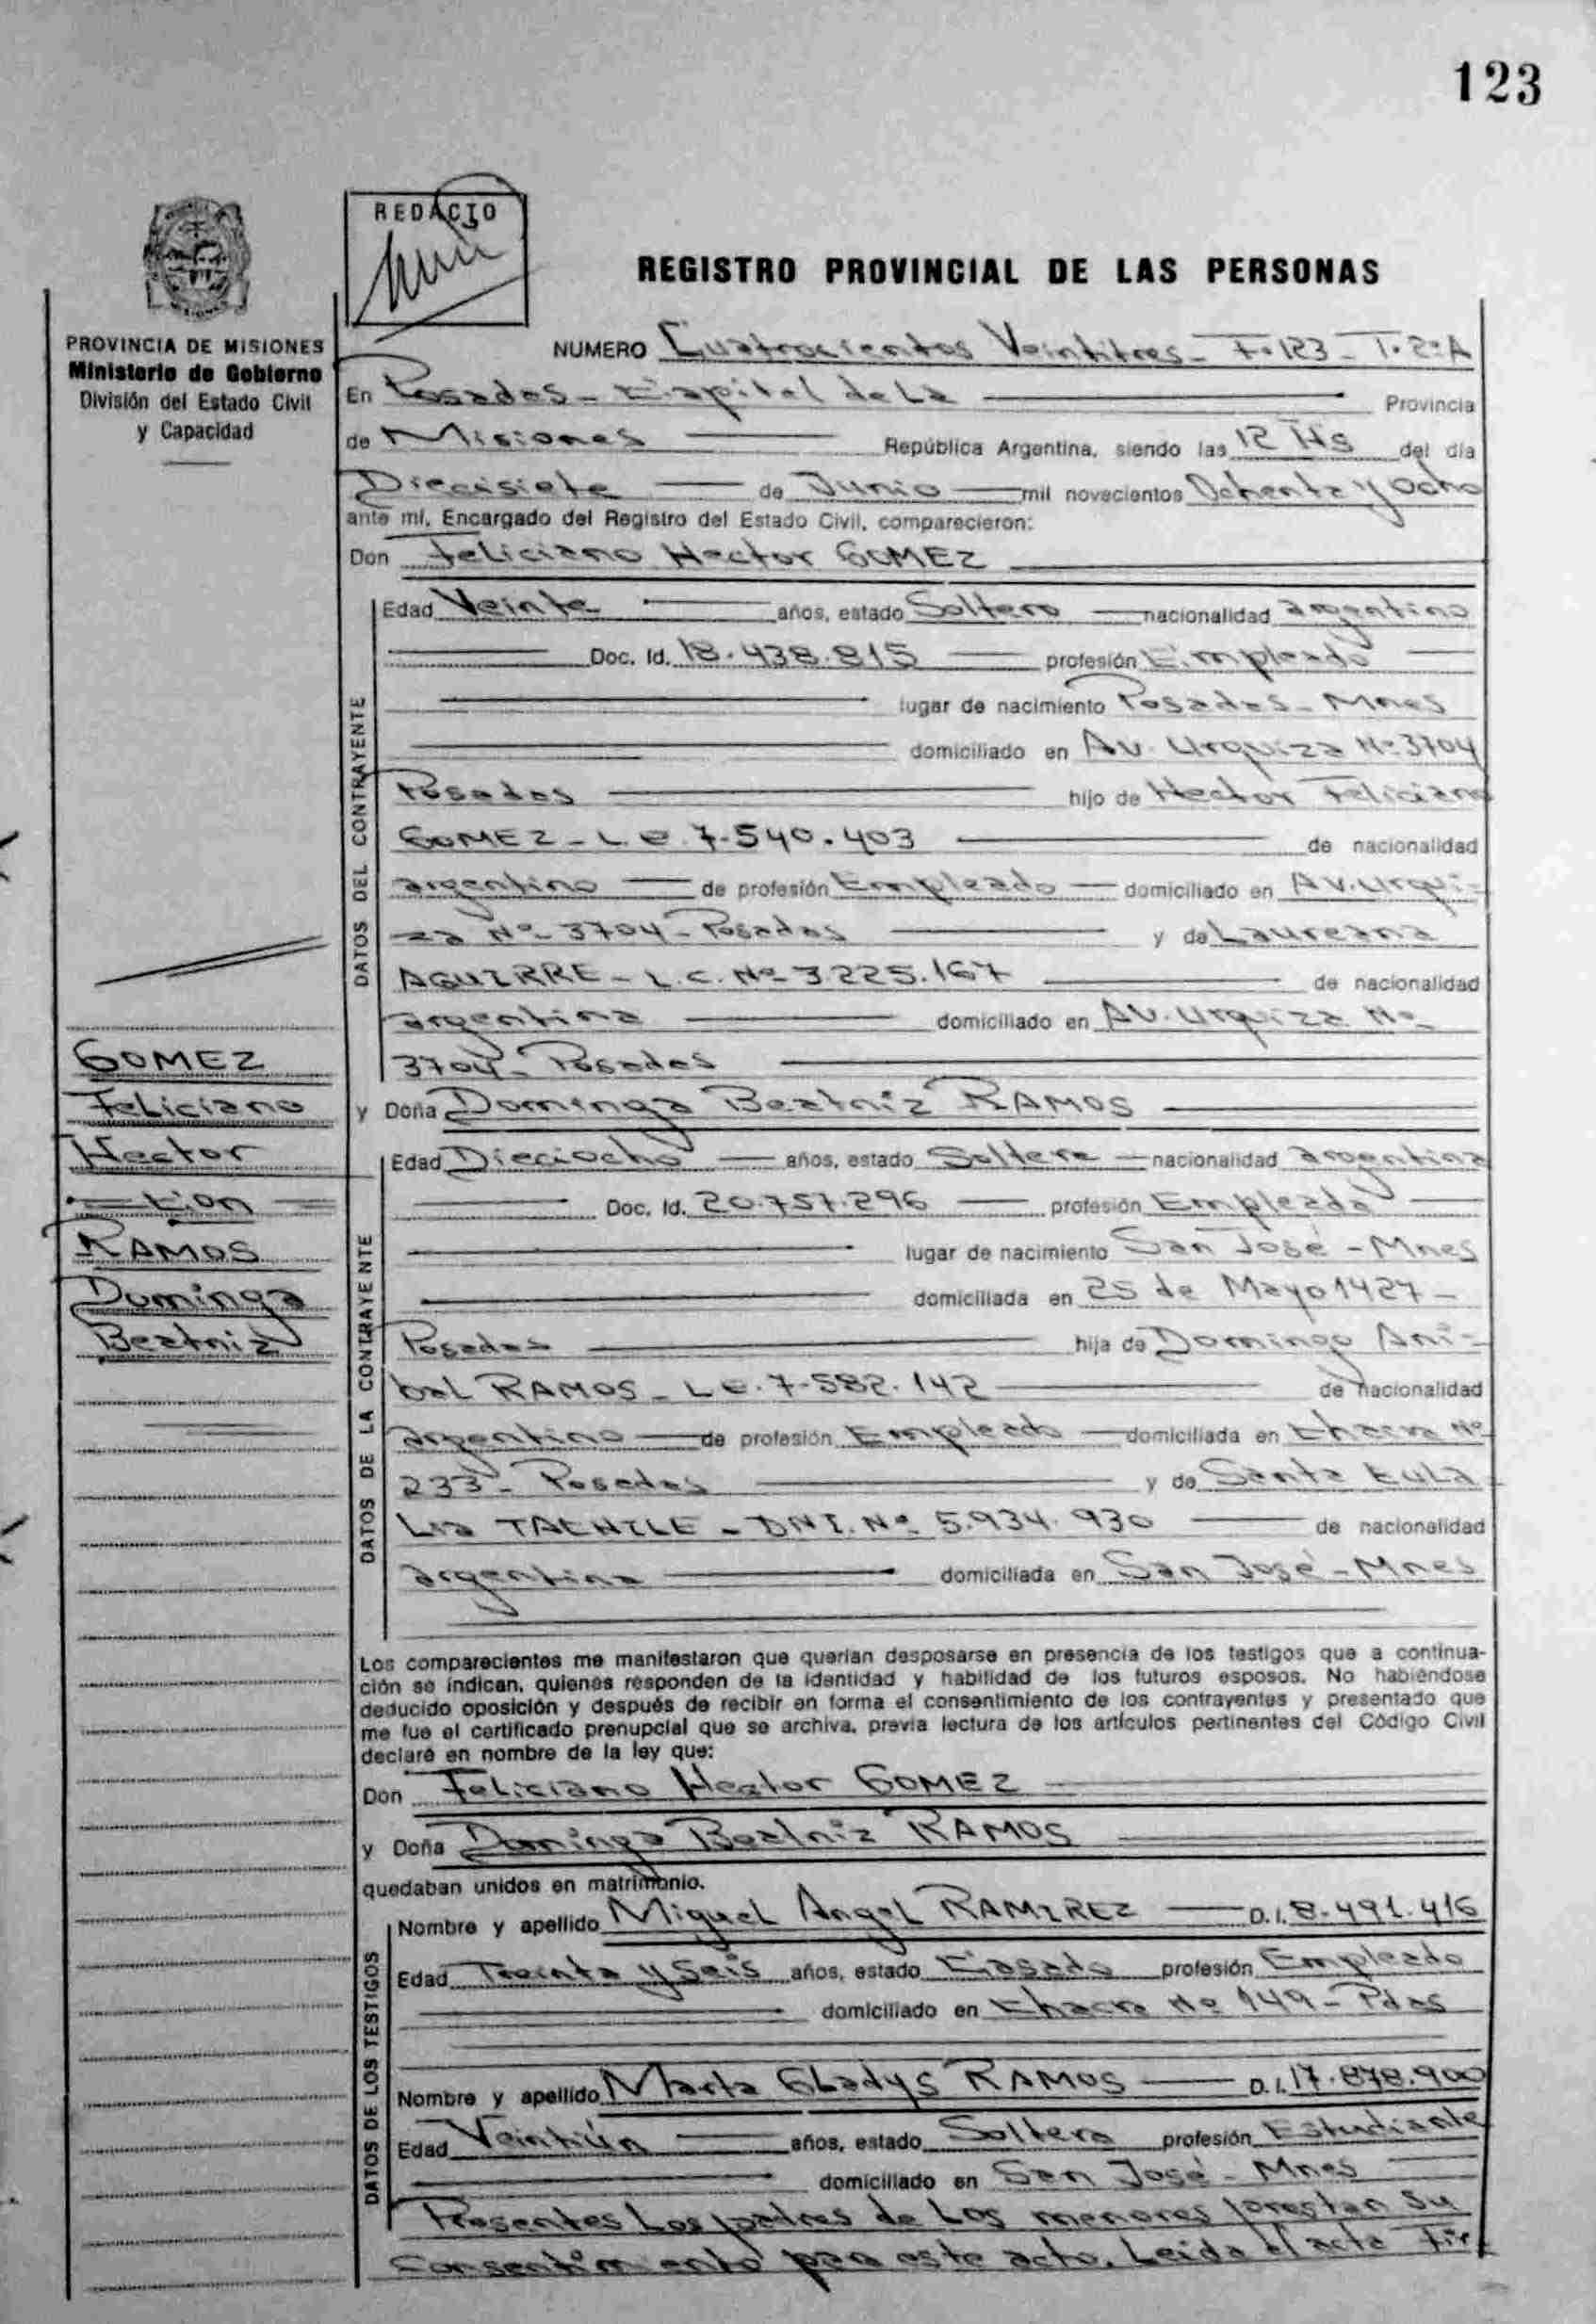 123
REDACTO
REGISTRO PROVINCIAL DE LAS PERSONAS
PROVINCIA DE MISIONES
Ministerio de Gobierno
División del Estado Civil
y Capacidad
NUMERO Cuatrocientos Veintitres - F. 123 - T. 2º A
En Posadas - Capital de La Provincia
de Misiones República Argentina, siendo las 12 Hs del día
Diecisiete de Junio mil novecientos Ochenta y Ocho
ante mí, Encargado del Registro del Estado Civil, comparecieron:
Don Feliciano Hector GOMEZ
DATOS DEL CONTRAYENTE
Edad Veinte años, estado Soltero nacionalidad argentino
Doc. Id. 18.438.815 profesión Empleado
lugar de nacimiento Posadas - Mnes
domiciliado en Av. Urquiza Nº 3704
Posadas hijo de Hector Feliciano
GOMEZ - L.E. 7.540.403 de nacionalidad
argentino de profesión Empleado domiciliado en Av. Urqui-
za Nº 3704 - Posadas y de Laureana
AGUIRRE - L.C. Nº 3.225.167 de nacionalidad
argentina domiciliado en Av. Urquiza Nº
3704 - Posadas
GOMEZ
Feliciano
Hector
= Con =
RAMOS
Dominga
Beatriz
y Doña Dominga Beatriz RAMOS
DATOS DE LA CONTRAYENTE
Edad Dieciocho años, estado Soltera nacionalidad argentina
Doc. Id. 20.757.296 profesión Empleada
lugar de nacimiento San José - Mnes
domiciliada en 25 de Mayo 1427 -
Posadas hija de Domingo Ani-
bal RAMOS - L.E. 7.582.142 de nacionalidad
argentino de profesión Empleado domiciliada en Chacra Nº
233 - Posadas y de Santa Eula
Lia TACHILE - DNI. Nº 5.934.930 de nacionalidad
argentina domiciliada en San José - Mnes
Los comparecientes me manifestaron que querían desposarse en presencia de los testigos que a continua-
ción se indican, quienes responden de la identidad y habilidad de los futuros esposos. No habiéndose
deducido oposición y después de recibir en forma el consentimiento de los contrayentes y presentado que
me fue el certificado prenupcial que se archiva, previa lectura de los artículos pertinentes del Código Civil
declaré en nombre de la ley que:
Don Feliciano Hector GOMEZ
y Doña Dominga Beatriz RAMOS
quedaban unidos en matrimonio.
DATOS DE LOS TESTIGOS
Nombre y apellido Miguel Angel RAMIREZ D.I. 8.491.416
Edad Treinta y Seis años, estado Casado profesión Empleado
domiciliado en Chacra Nº 149 - Pdas
Nombre y apellido Marta Gladys RAMOS D.I. 17.878.900
Edad Veintiún años, estado Soltera profesión Estudiante
domiciliado en San José - Mnes
Presentes Los padres de Los menores prestan su
Consentimiento para este acto. Leida el acta Fir-